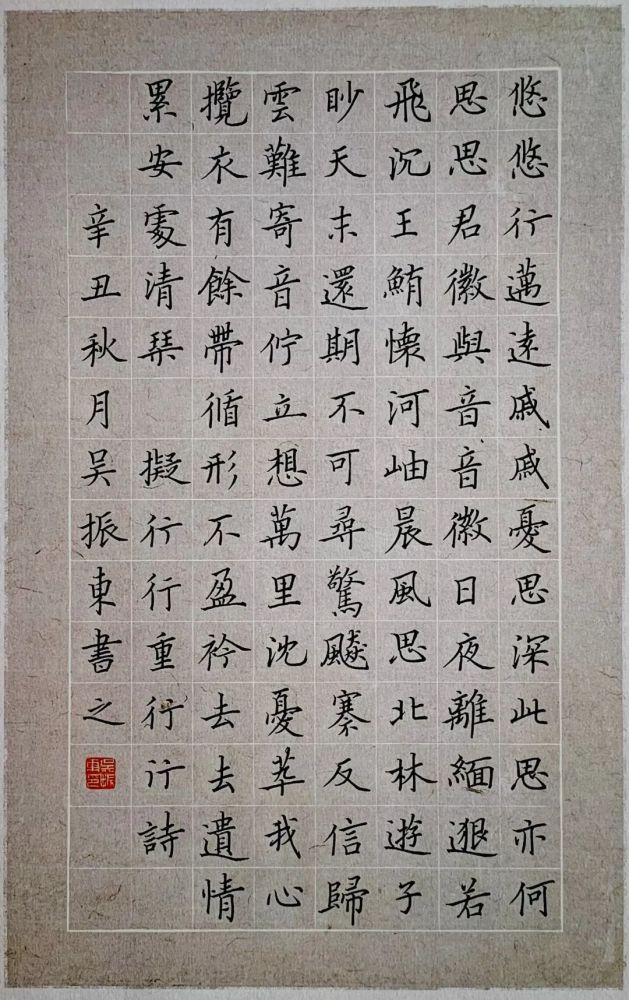 悠悠行邁遠戚戚憂思深此思亦何
思思君徽與音音徽日夜離緬邈若
飛沉王鮪懷河岫晨風思北林遊子
眇天末還期不可尋驚飈褰反信歸
雲難寄音佇立想萬里沈憂萃我心
攬衣有餘帶循形不盈衿去去遺情
累安處清琴 擬行行重行行詩
辛丑秋月吳振東書之
吳振東印